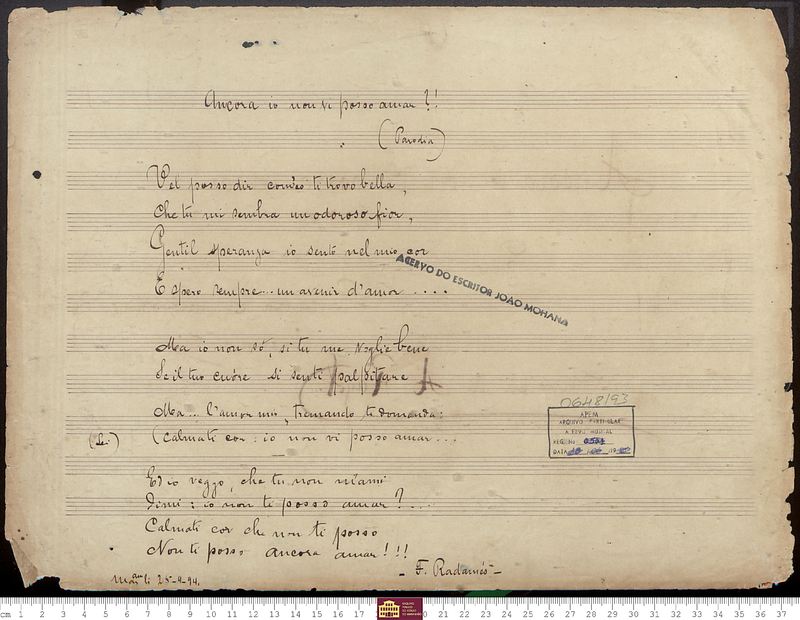 Ancora io non vi posso amar?!
(Parodia)
Vel posso dir com'io ti trovo bella,
Che tu mi sembra un odoroso fior,
Gentil speranza io sento nel mio cor
E spero sempre... un avenir d'amor....
ACERVO DO ESCRITOR JOÃO MOHANA
Ma io non só, si tu me voglie bene
Se il tuo cuóre si senti palpitare
Ma... l'amor mio, tremando te domanda:
(Lei) (Calmati cor: io non vi posso amar...
Ed io veggo, che tu non m'ami
Dimi: io non te posso amar?....
Calmati cor che non ti posso
Non te posso ancora amar!!!
- F. Radamés -
25-9-94.
0648/93
APEM
ARQUIVO PARTICULAR
ACERVO MUSICAL
REG. No
DATA
cm 1 2 3 4 5 6 7 8 9 10 11 12 13 14 15 16 17 0 21 22 23 24 25 26 27 28 29 30 31 32 33 34 35 36 37